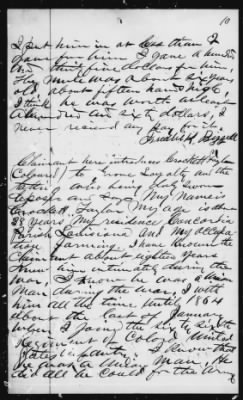 10
I put him in at less than I
gave for him I gave a hundred
and thirty five dollars for him.
The mule was about six years
old about fifteen hands high,
I think he was worth at least
a hundred and sixty dollars, I
never received any pay for it.
Claimant here introduces Crockett Taylor
(Colored) to prove Loyalty and the
who being duly sworn
deposes and says My name is
Crockett Taylor My age is
years My residence Concordia
Parish Louisiana and My occupa
tion farming. I have known the
Claimant about eighteen years
knew him intimately during the
war, I know he was a Union
Man during the war, I with
him all the time until 1864
about the last of January
when I joined the Sixty Sixth
Regiment of Cold United
States Infantry. I know that
he was a Union Man, He
did all he could for the Army